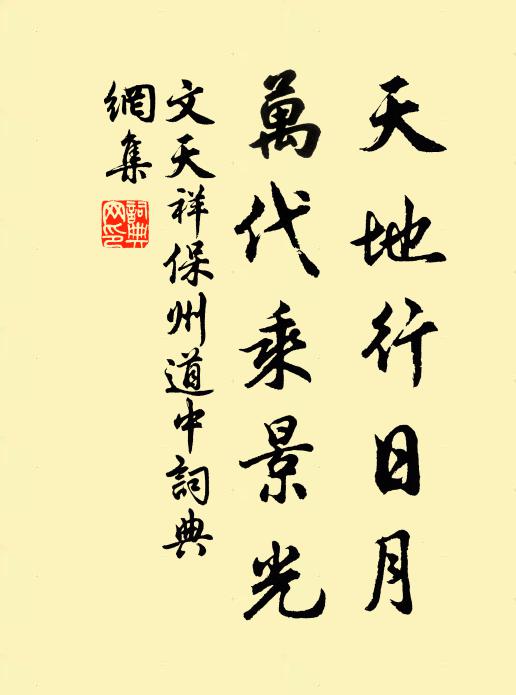 天地行日月
萬代乘景光
文天祥保州道中詞典
網集
詞典網印